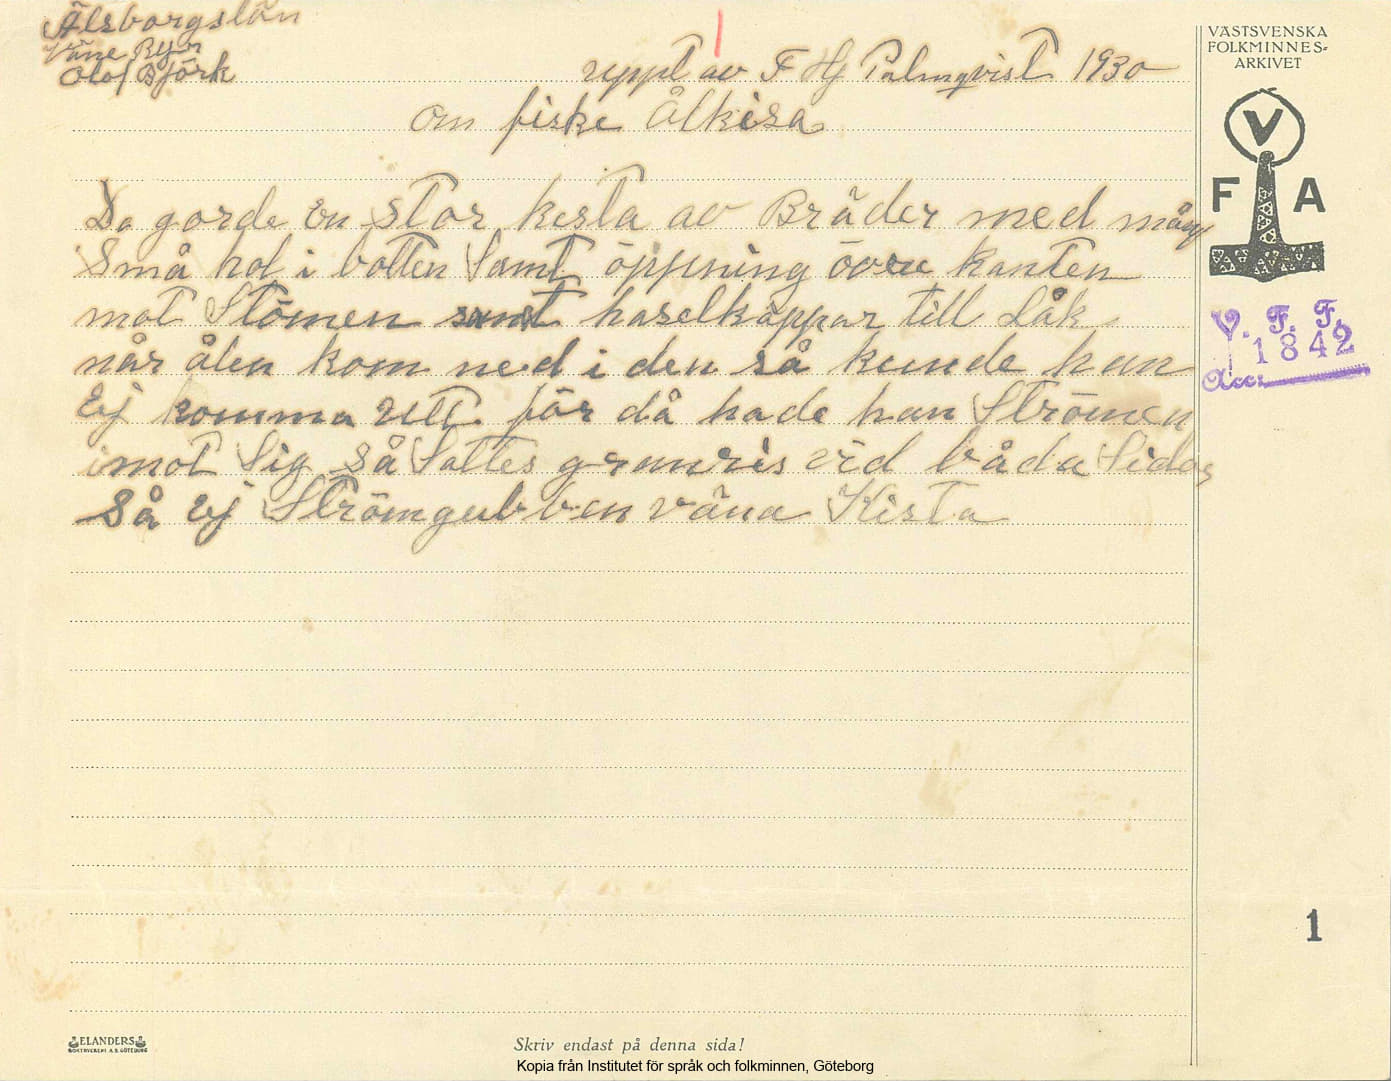 Älsborgslän
Väne Ryr
Olof Björk
uppt av F Hj Palmqvist 1930
om fiske Ålkisa
De gorde en stor kista av Bräder med mång
Små hol i botten Samt öppning övre kanten
mot Stömen samt haselkäppar till Låk
når ålen kom ned i den så kunde han
Ej komma utt för då hade han Strömen
imot Sig Så Sattes granris vid båda Sidor
Så ej Strömgubben väna Kista
VÄSTSVENSKA
FOLKMINNES-
ARKIVET
V
F A
V. F. F.
1842
Acc:
1
ELANDERS
BOKTRYCKERI A.B. GÖTEBORG
Skriv endast på denna sida!
Kopia från Institutet för språk och folkminnen, Göteborg